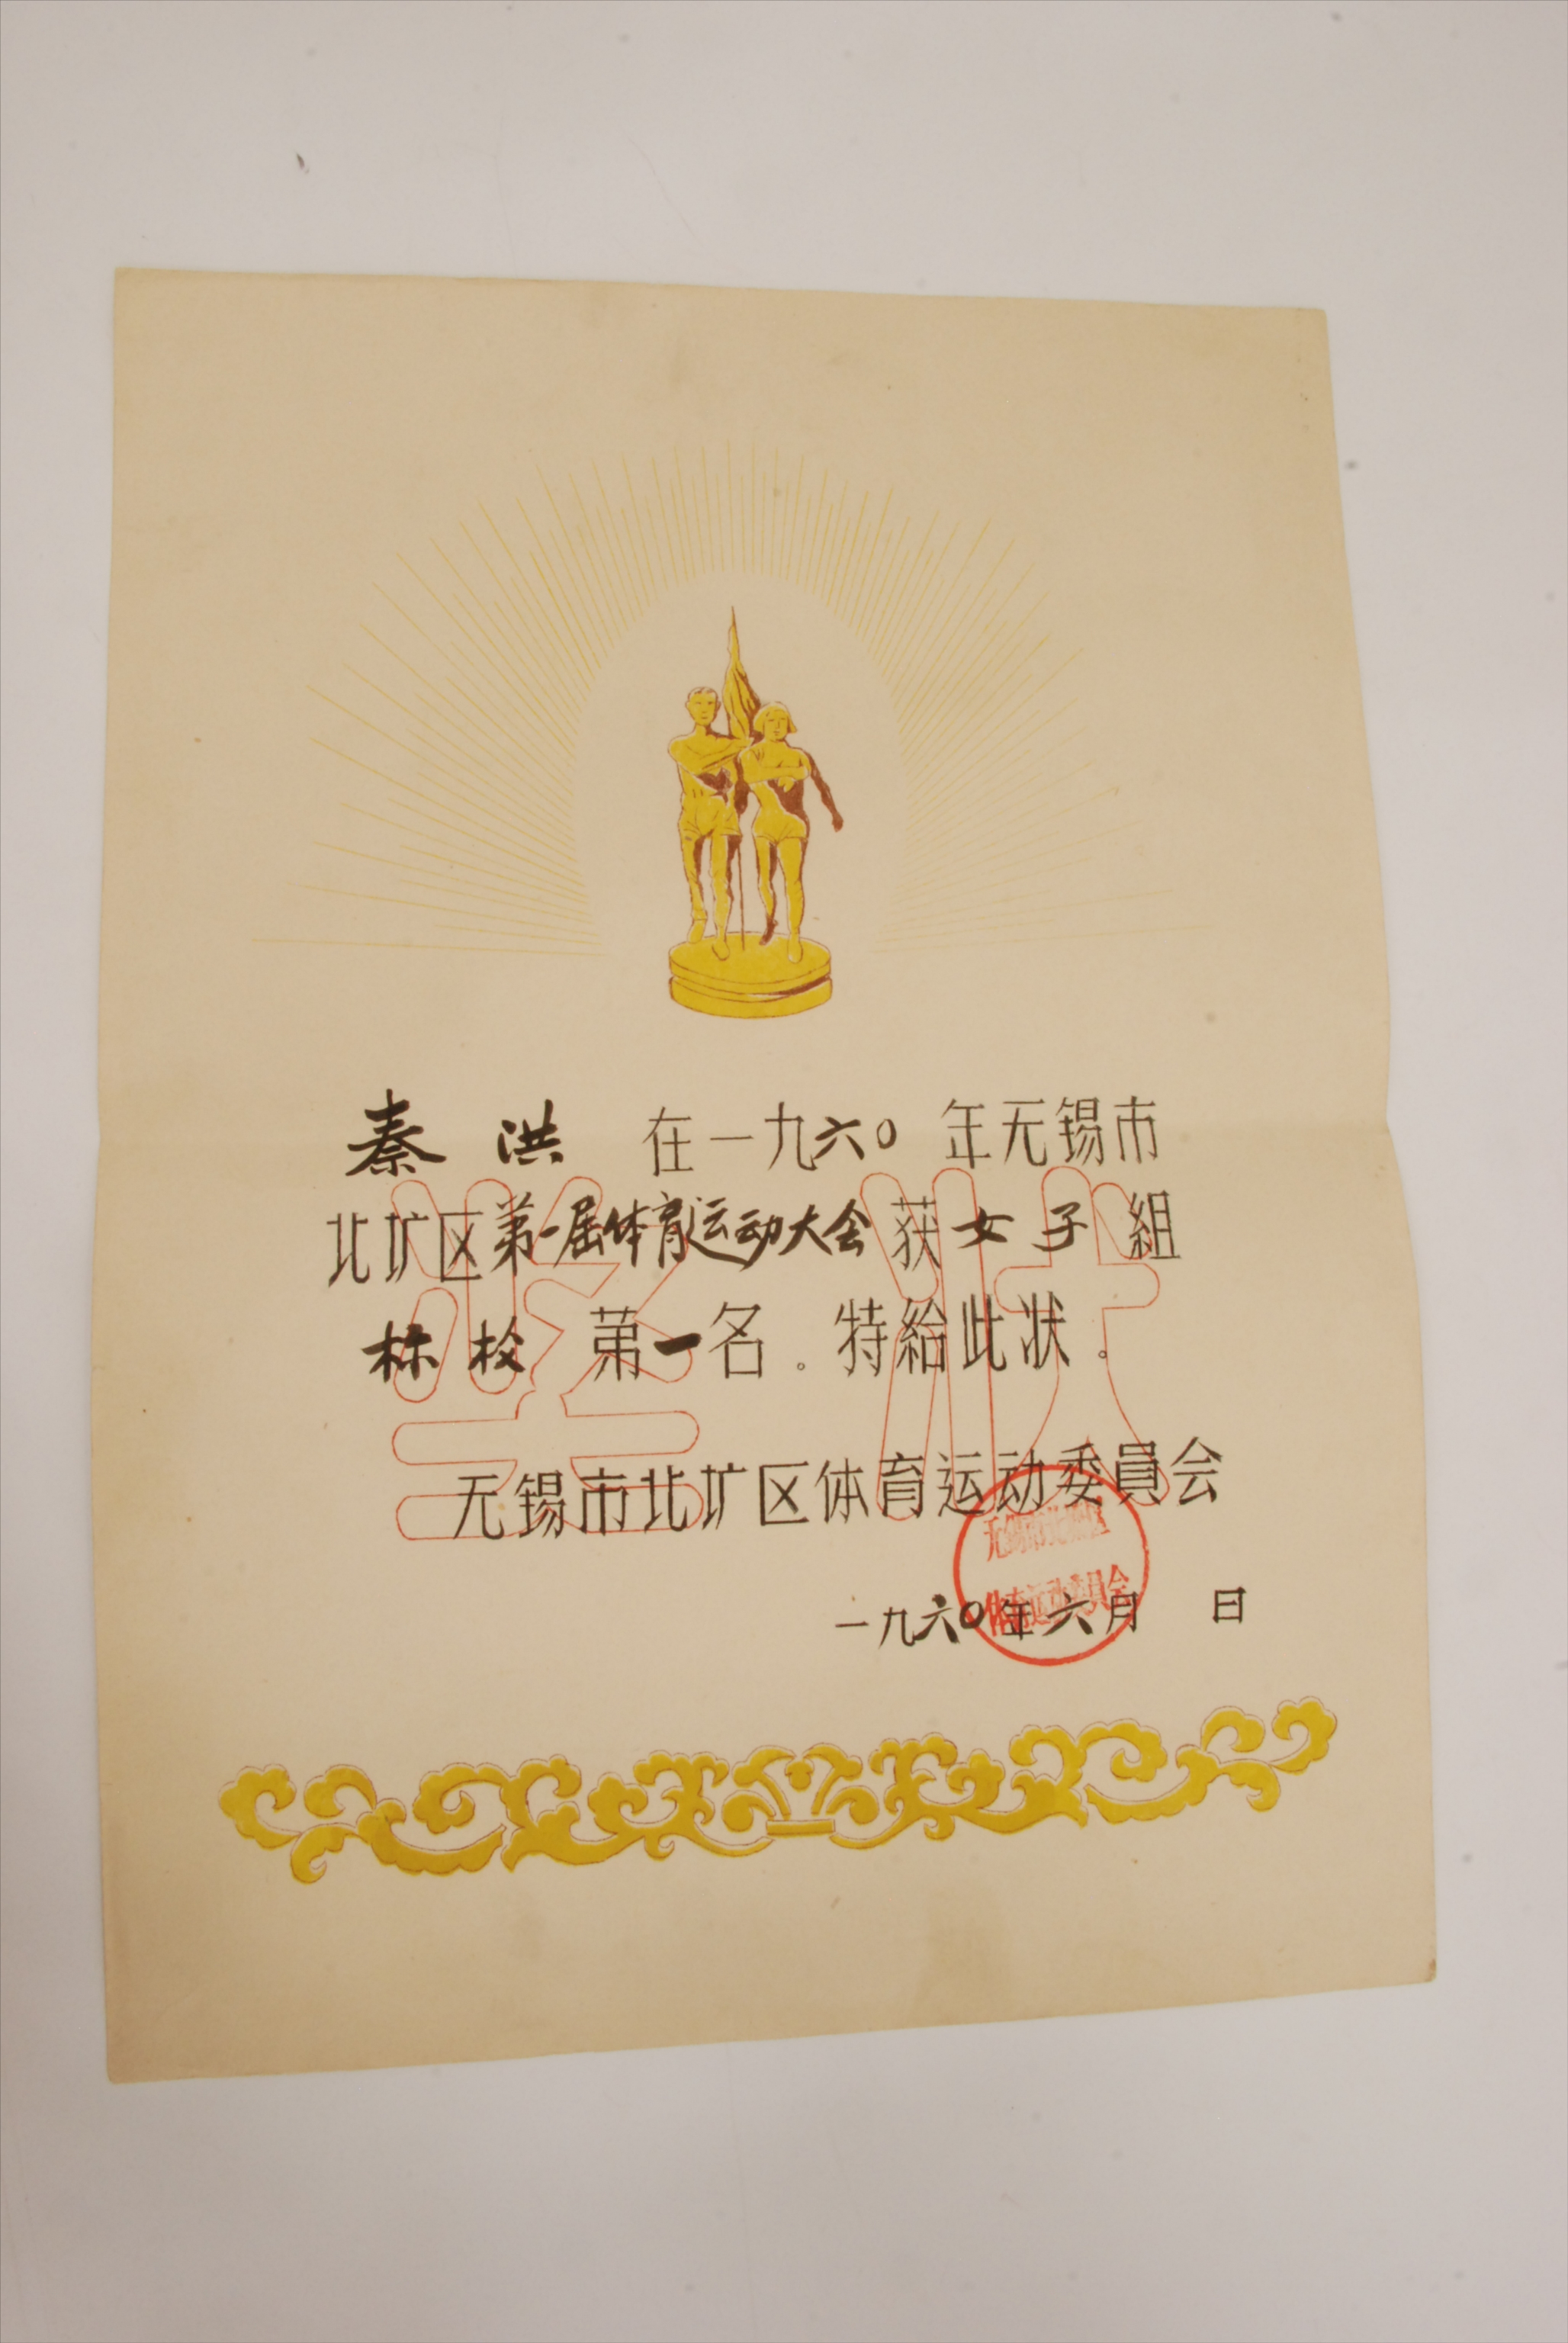 秦 洪 在一九六〇 年无锡市
北圹区第一届体育运动大会 获 女子 組
标枪 第一名。特給此状。
奖状
无锡市北圹区体育运动委員会
一九六〇年六月 日
体育运动委員会